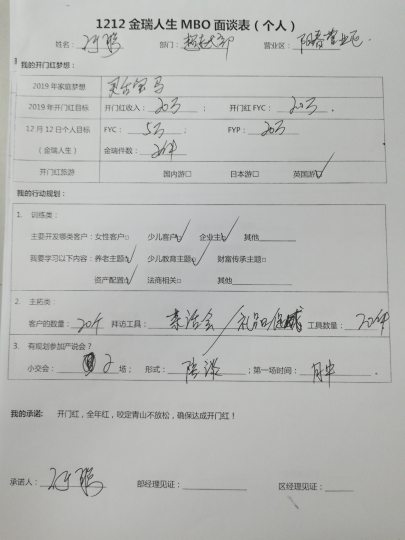 1212 金瑞人生 MBO 面谈表（个人）
姓名： 部门： 营业区：阳春营业区
我的开门红梦想：
2019 年家庭梦想 宝马
2019 年开门红目标 开门红收入：20万； 开门红 FYC：20万
12 月 12 日个人目标 FYC：5万； FYP：20万
（金瑞人生） 金瑞件数：2件
开门红旅游 国内游□ 日本游□ 英国游☑
我的行动规划：
1. 训练类：
主要开发哪类客户：女性客户□ 少儿客户☑ 企业主☑ 其他
我要学习以下内容：养老主题☑ 少儿教育主题☑ 财富传承主题□
资产配置☑ 法商相关□ 其他
2. 主拓类：
客户的数量：20个 拜访工具： 工具数量：20件
3. 有规划参加产说会？
小交会：2 场； 形式：陪谈；第一场时间：月中
我的承诺： 开门红，全年红，咬定青山不放松，确保达成开门红！
承诺人： 部经理见证： 区经理见证：